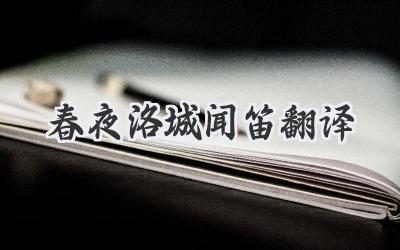 春夜洛城闻笛翻译